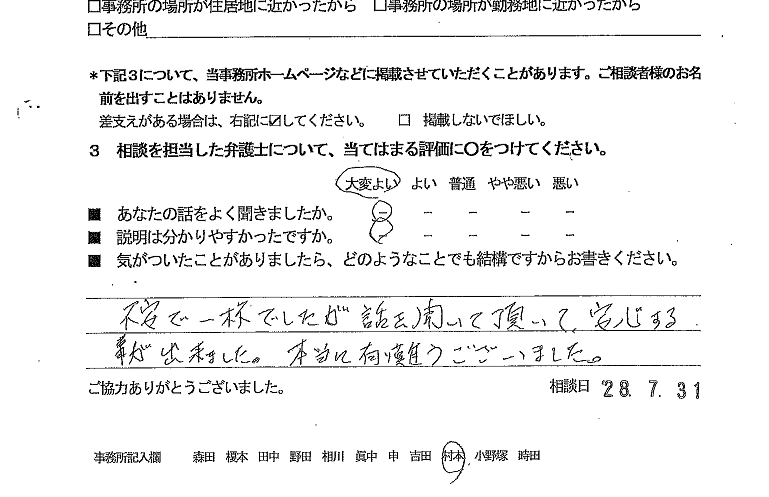 □事務所の場所が住居地に近かったから □事務所の場所が勤務地に近かったから
□その他
*下記3について、当事務所ホームページなどに掲載させていただくことがあります。ご相談者様のお名
前を出すことはありません。
差支えがある場合は、右記に☑してください。 □ 掲載しないでほしい。
3 相談を担当した弁護士について、当てはまる評価に〇をつけてください。
大変よい よい 普通 やや悪い 悪い
■ あなたの話をよく聞きましたか。 - - - - -
■ 説明は分かりやすかったですか。 - - - - -
■ 気がついたことがありましたら、どのようなことでも結構ですからお書きください。
不安で一杯でしたが話を聞いて頂いて、安心する
事が出来ました。本当に有難うございました。
ご協力ありがとうございました。 相談日 28. 7. 31
事務所記入欄 森田 榎本 田中 野田 相川 眞中 申 吉田 村本 小野塚 時田